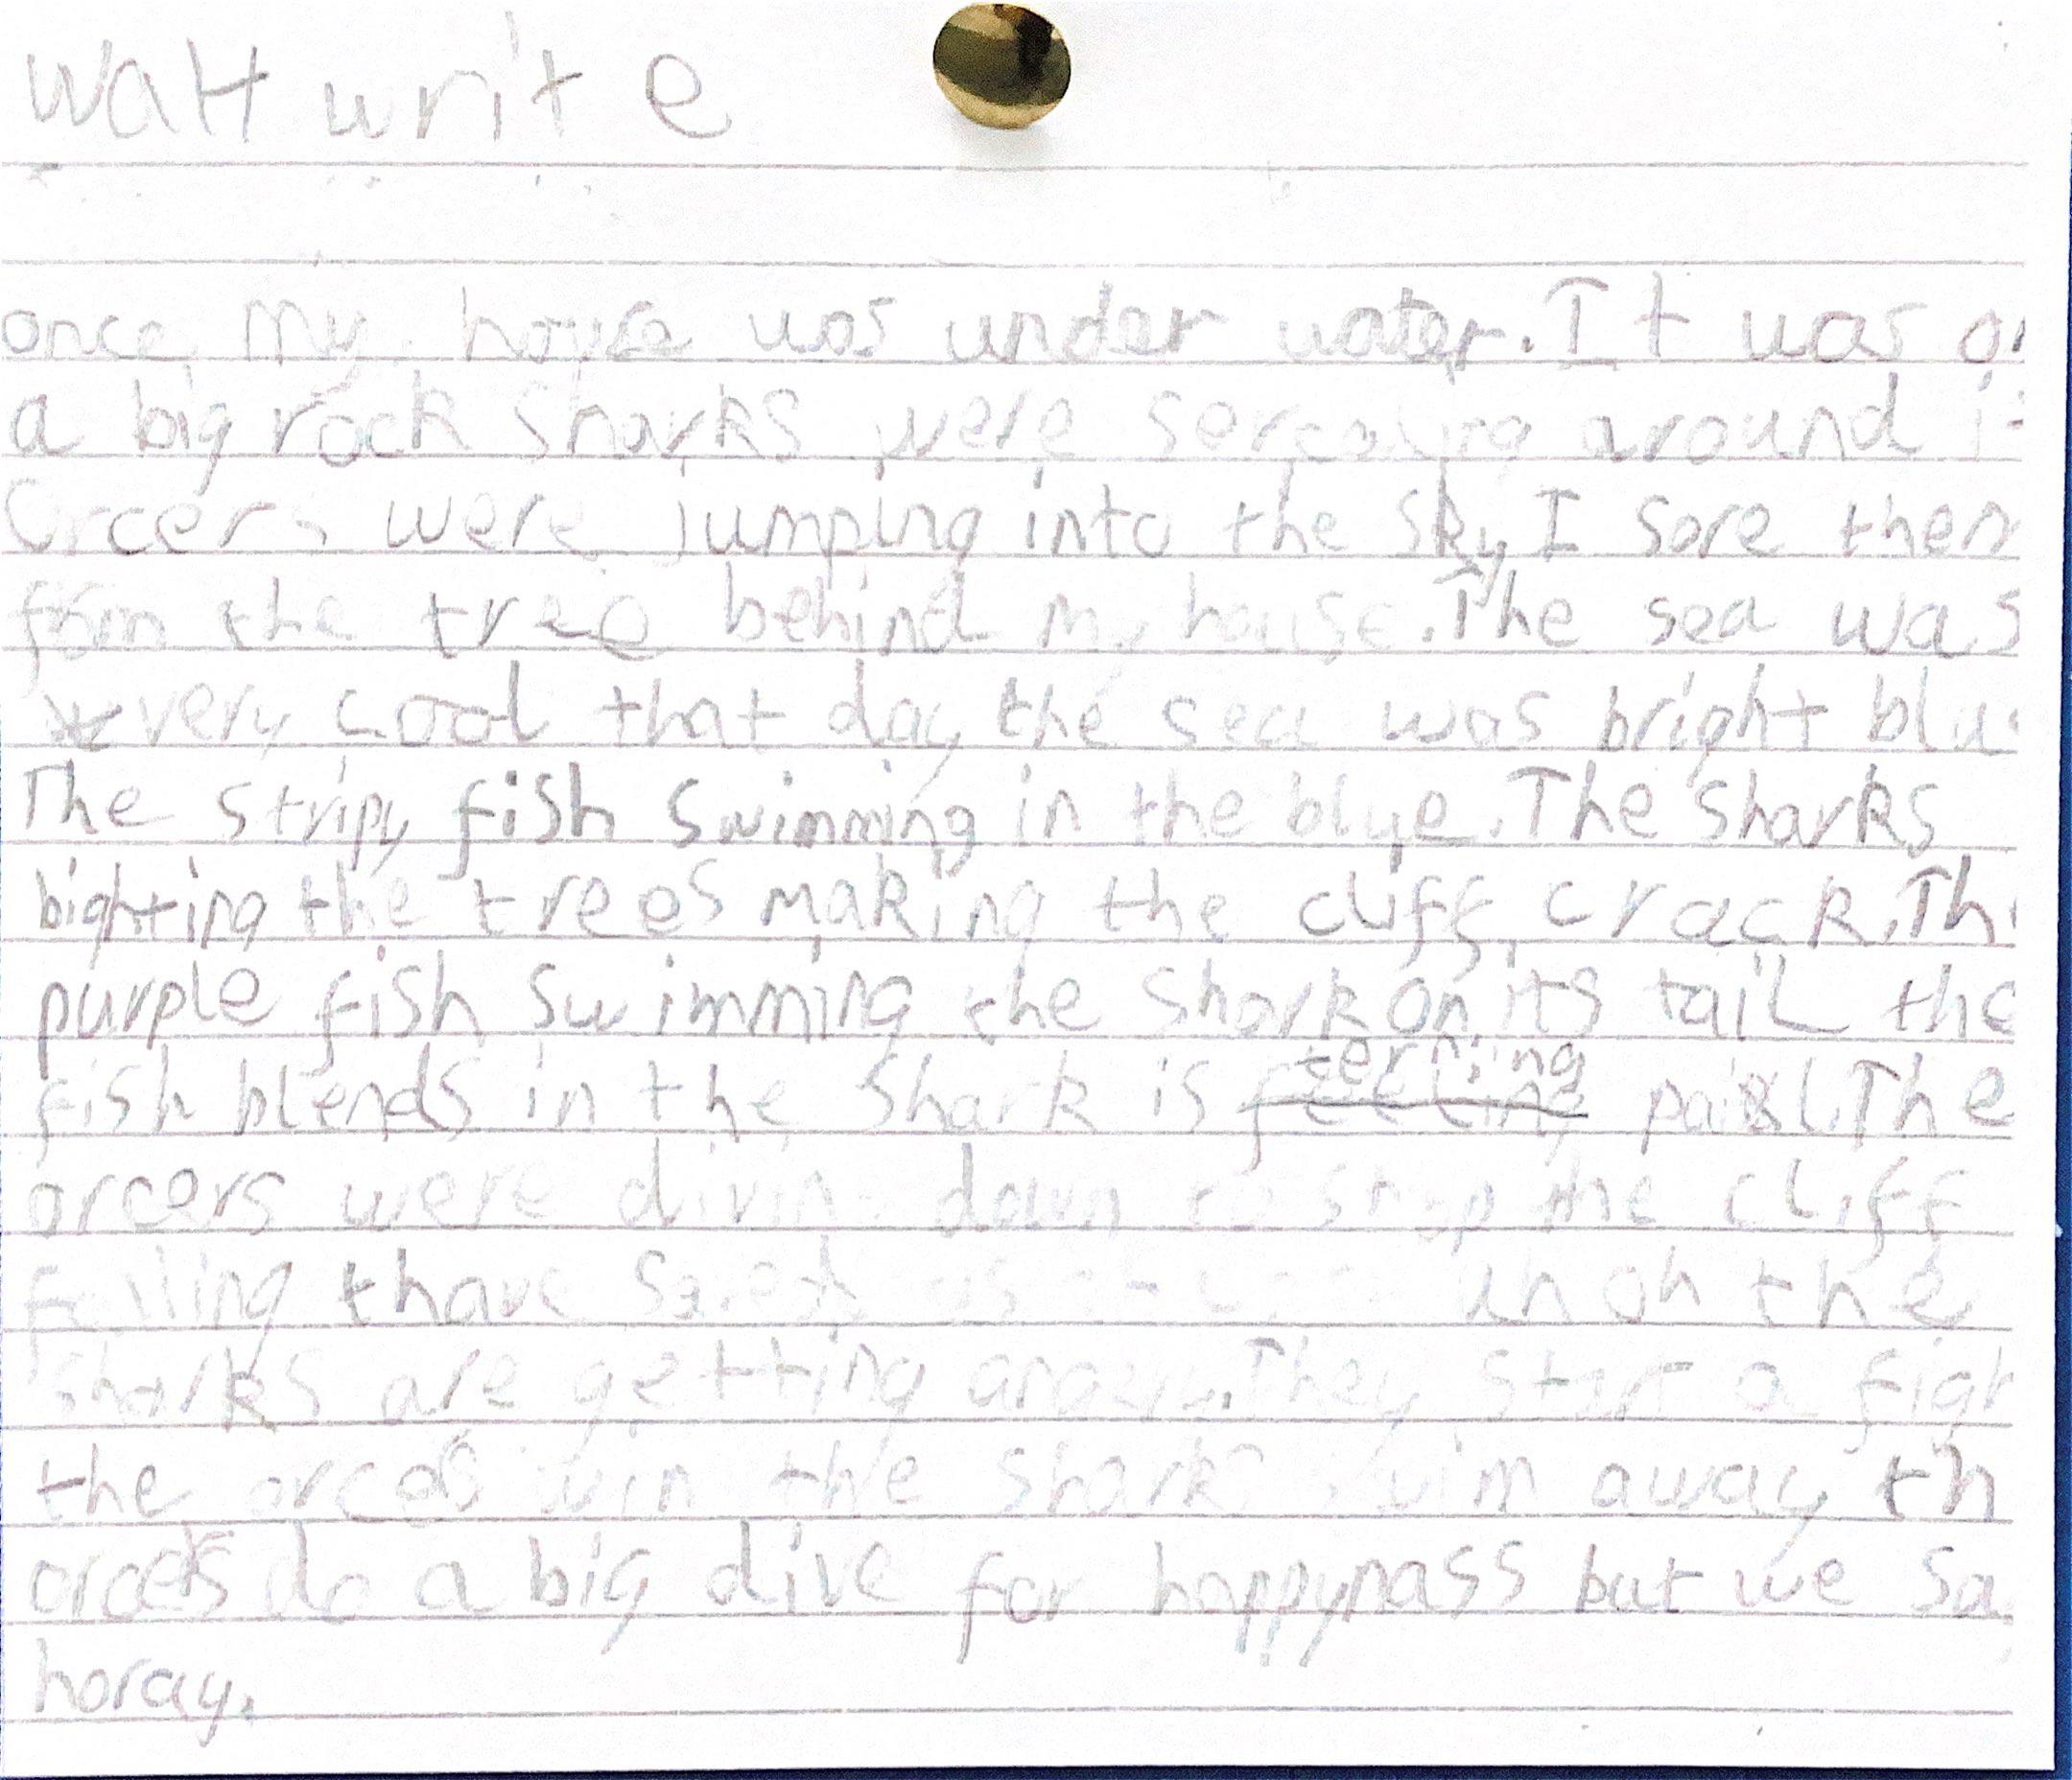 Walt write
once my house was under water. It was
a big rock sharks were sercaling around
orcers were jumping into the sky I sore them
from the tree behind my house. The sea was
very cool that day the sea was bright blu
The stripy fish swimming in the blue. The sharks
bighting the trees making the cliff crack. Th
purple fish swimming the shark on its tail the
fish blends in the shark is terning pail. The
orcers were diving down to stop the cliff
falling thave uh oh the
sharks are getting angry. They start a figh
the orcas win the sharks swim away th
orcers do a big dive for happynass but we sa
horay.